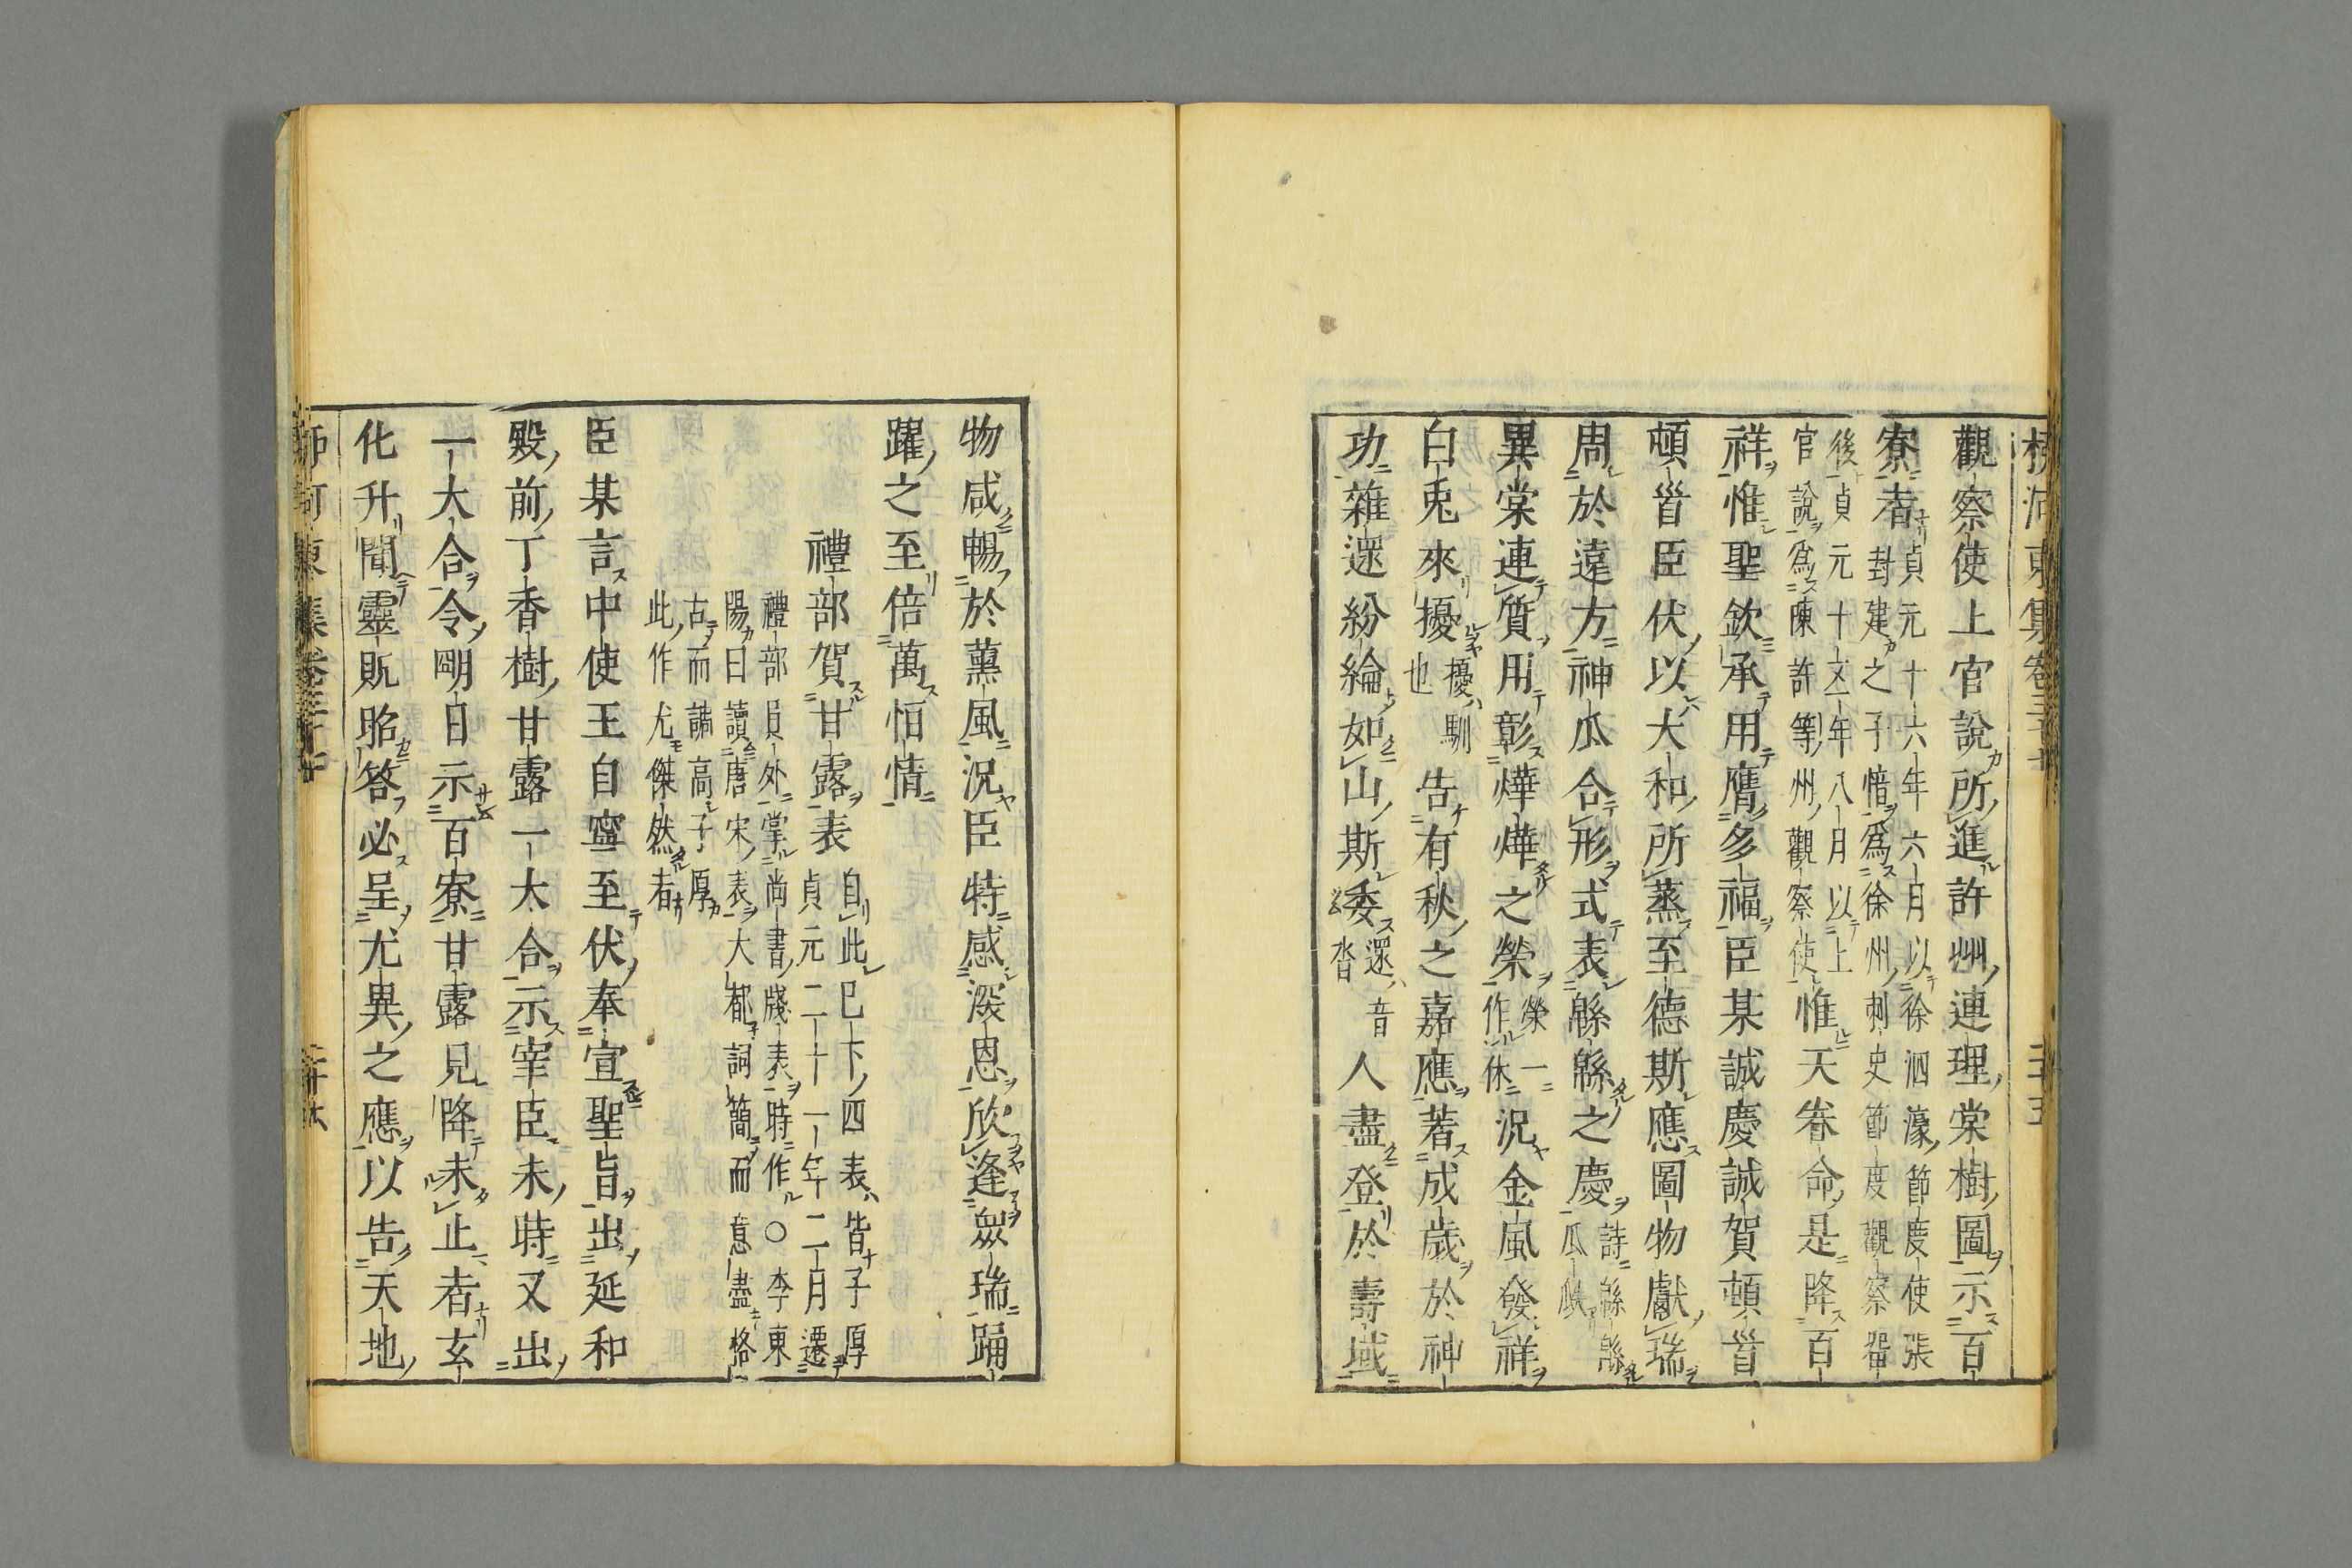 河東集卷三十七 三十五
觀察使上官說所進許州連理棠樹圖示百
寮者貞元十六年六月以徐泗濠節度使張
封建之子愔爲徐州刺史節度觀察留
後貞元十五年八月以上
官說爲陳許等州觀察使惟天眷命是降百
祥惟聖欽承用膺多福臣某誠慶誠賀頓首
頓首臣伏以大和所蒸至德斯應圖物獻瑞
周於遠方神瓜合形式表緜緜之慶詩緜緜
瓜瓞
異棠連質用彰煒煒之榮榮一
作休況金風發祥
白兎來擾擾馴
也告有秋之嘉應著成歲於神
功雜遝紛綸如山斯委遝音
沓人盡登於壽域
物咸暢於薰風況臣特感深恩欣逢衆瑞踊
躍之至倍萬恒情
禮部賀甘露表自此已下四表皆子厚
貞元二十一年二月遷
禮部員外掌尚書牋表時作○李東
陽曰讀唐宋表大都詞簡而意盡格
古而調高子厚
此作尤傑然者
臣某言中使王自寧至伏奉宣聖旨出延和
殿前丁香樹甘露一大合示宰臣未時又出
一大合令明日示百寮甘露見降未止者玄
化升聞靈貺昭答必呈尤異之應以告天地
河東集卷三十七 三十六